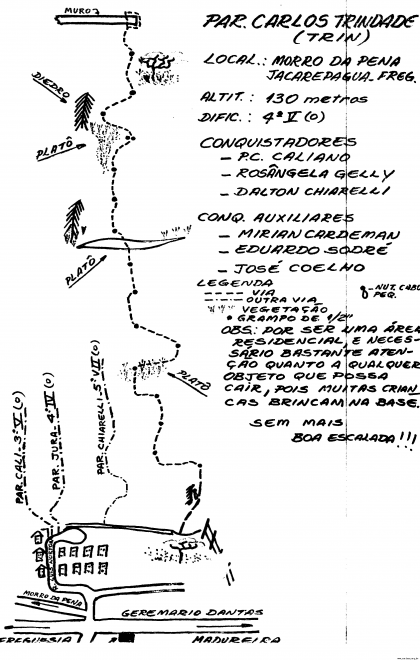 MURO
PAR. CARLOS TRINDADE
(TRIN)
LOCAL.: MORRO DA PENA
JACAREPAGUA-FREG.
ALTIT.: 130 metros
DIFIC.: 4º V (o)
CONQUISTADORES
— P.C. CALIANO
— ROSÂNGELA GELLY
— DALTON CHIARELLI
CONQ. AUXILIARES
— MIRIAN CARDEMAN
— EDUARDO SODRÉ
— JOSÉ COELHO
LEGENDA
VIA
OUTRA VIA
VEGETAÇÃO
• GRAMPO DE 1/2"
NUT. CABO
PEQ.
OBS.: POR SER UMA ÁREA
RESIDENCIAL, E NECES-
SÁRIO BASTANTE ATEN-
ÇÃO QUANTO A QUALQUER
OBJETO QUE POSSA
CAIR, POIS MUITAS CRIAN
CAS BRINCAM NA BASE.
SEM MAIS
BOA ESCALADA!!!
DIEDRO
PLATÔ
PLATÔ
PLATÔ
PAR. CALI-3º VI (o)
PAR. JURA-4º IV (o)
PAR. CHIARELLI-5º VII (o)
MORRO DA PENA
GEREMARIO DANTAS
FREGUESSIA
MADUREIRA